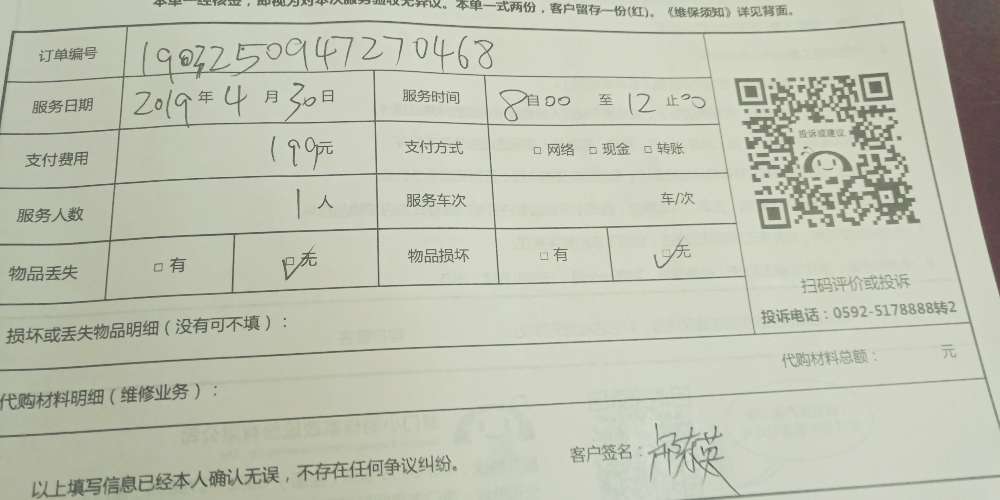 本单一经核签，即视为对本次服务验收无异议。本单一式两份，客户留存一份(红)。《维保须知》详见背面。
订单编号 1903250947270468
服务日期 2019年4月30日 服务时间 8自00至12止00
投诉或建议
支付费用 199元 支付方式 □网络 □现金 □转账
服务人数 1人 服务车次 车/次
物品丢失 □有 □无 物品损坏 □有 □无
扫码评价或投诉
投诉电话：0592-5178888转2
损坏或丢失物品明细（没有可不填）：
代购材料总额： 元
代购材料明细（维修业务）：
客户签名：
以上填写信息已经本人确认无误，不存在任何争议纠纷。